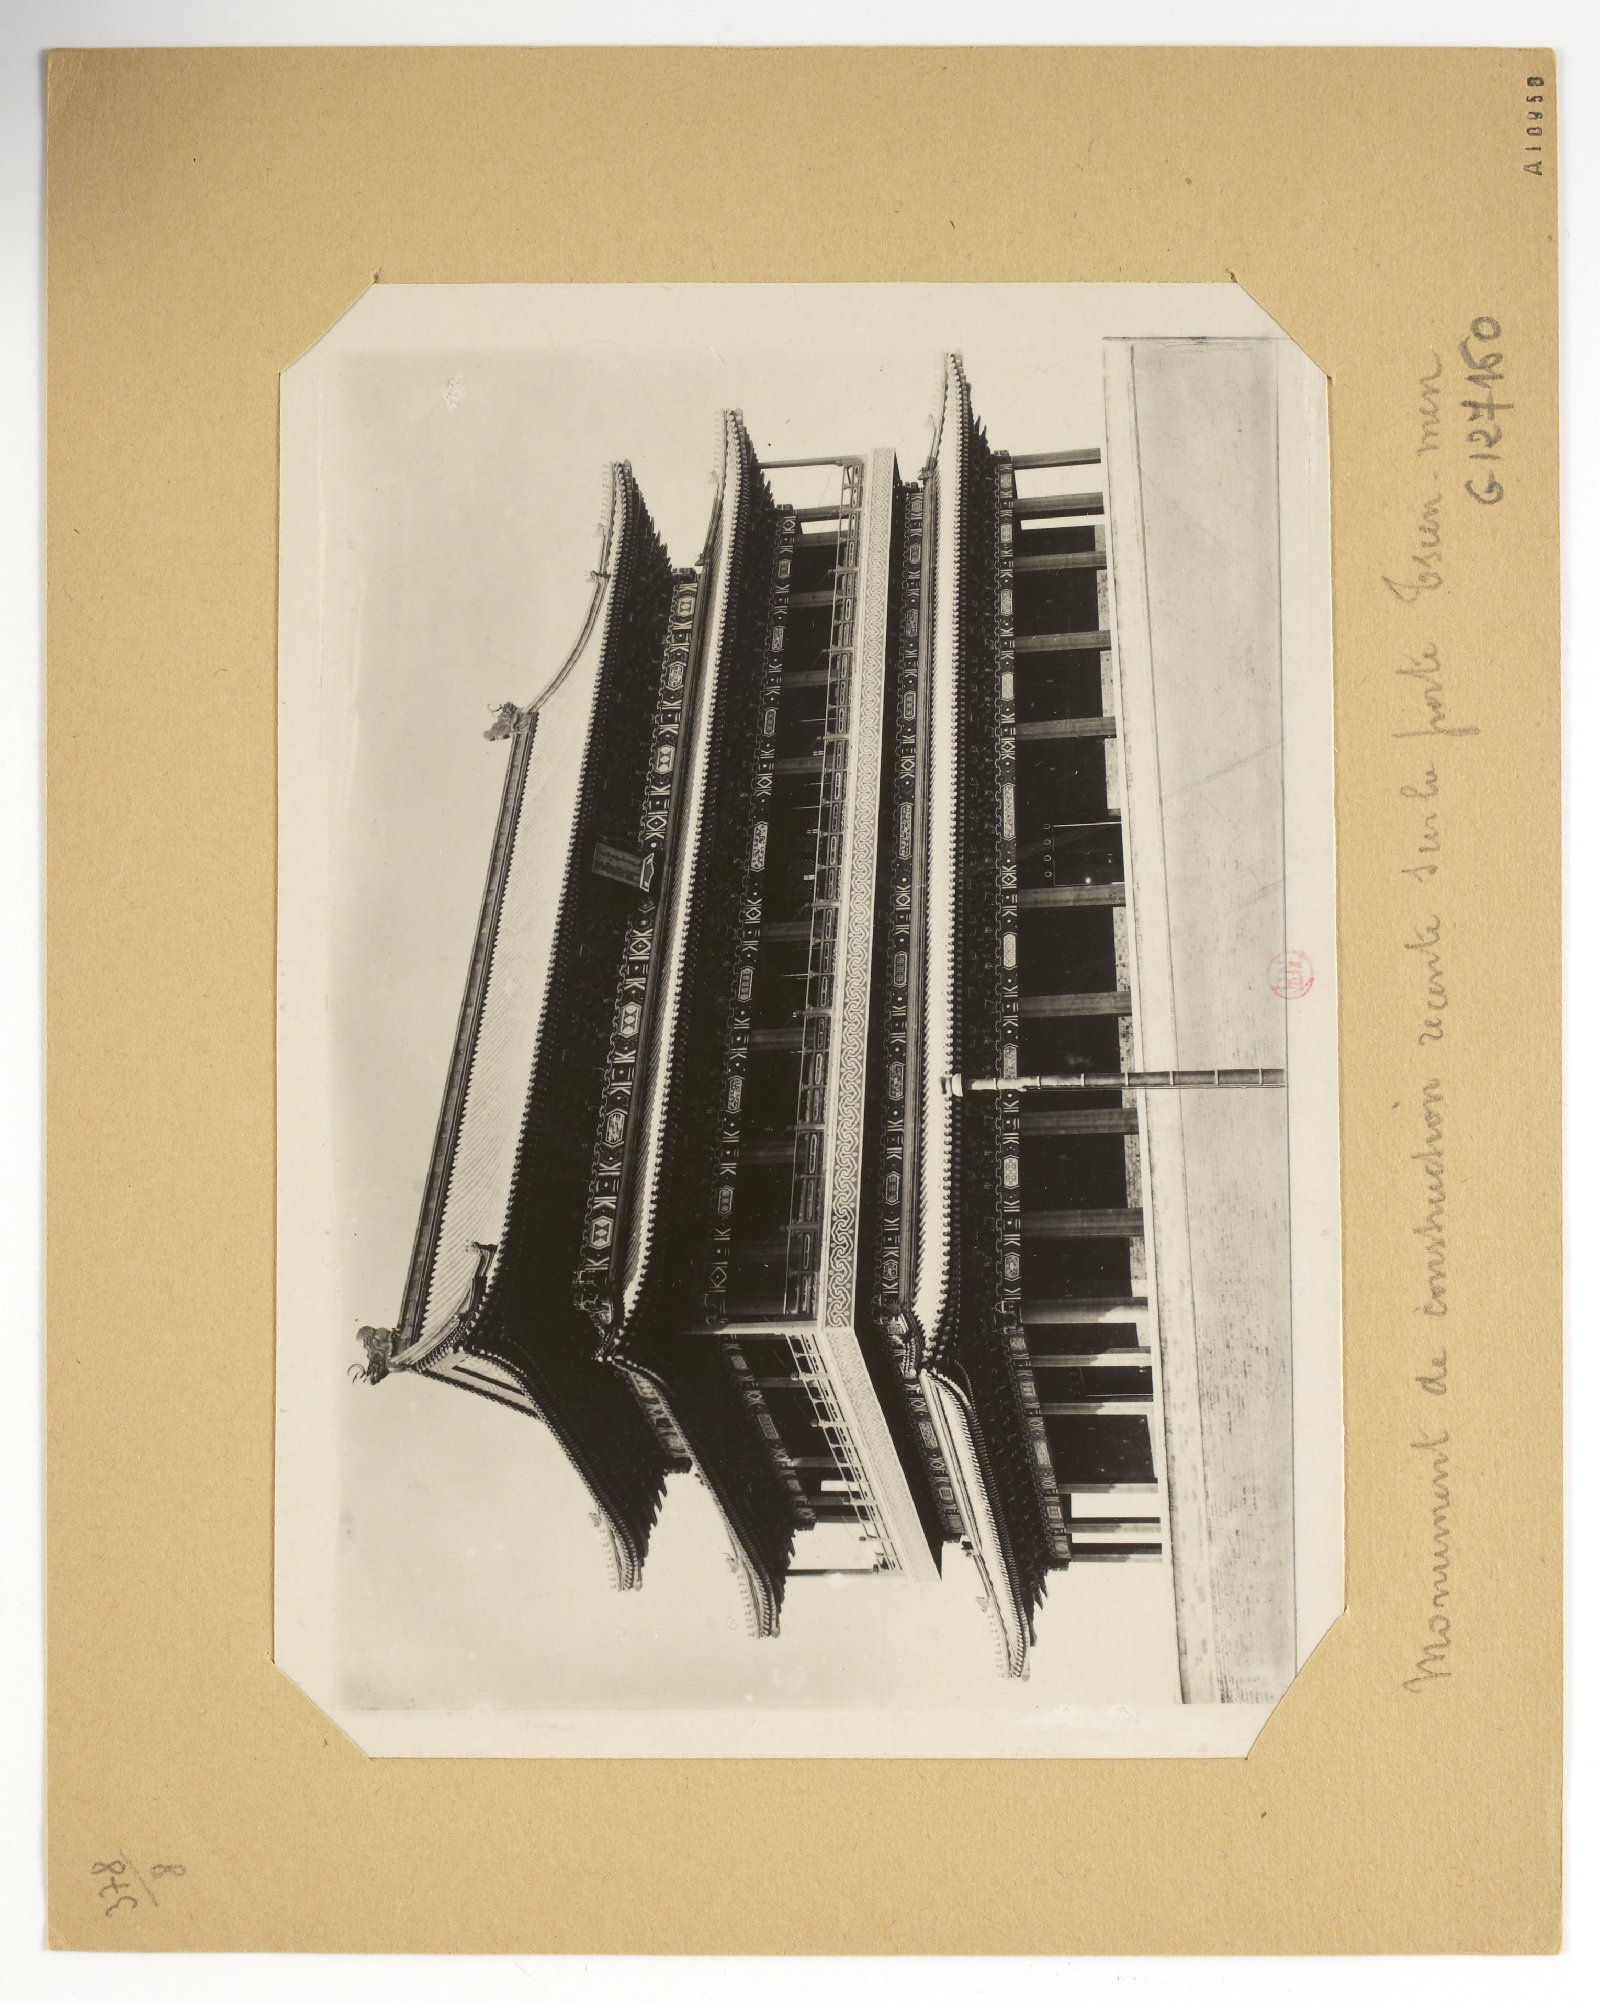 A10950
Monument de construction récente sur la porte Tsien-men
G127160
378/8